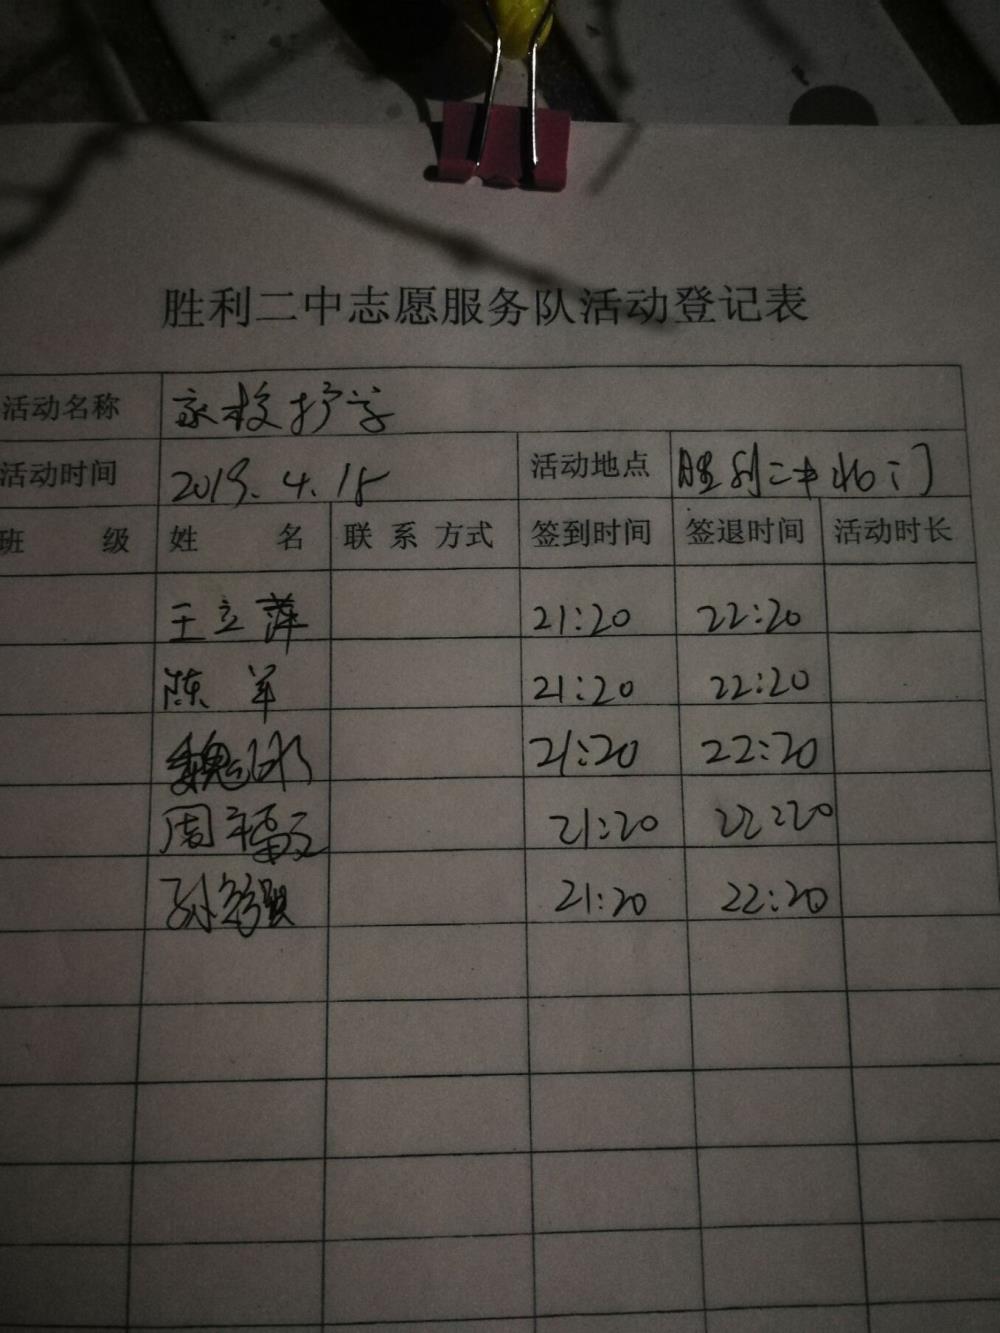 胜利二中志愿服务队活动登记表
活动名称 家校护学
活动时间 2019.4.18 活动地点 胜利二中北门
班 级 姓 名 联系方式 签到时间 签退时间 活动时长
王立萍 21:20 22:20
陈军 21:20 22:20
魏 21:20 22:20
周 21:20 22:20
孙 21:20 22:20